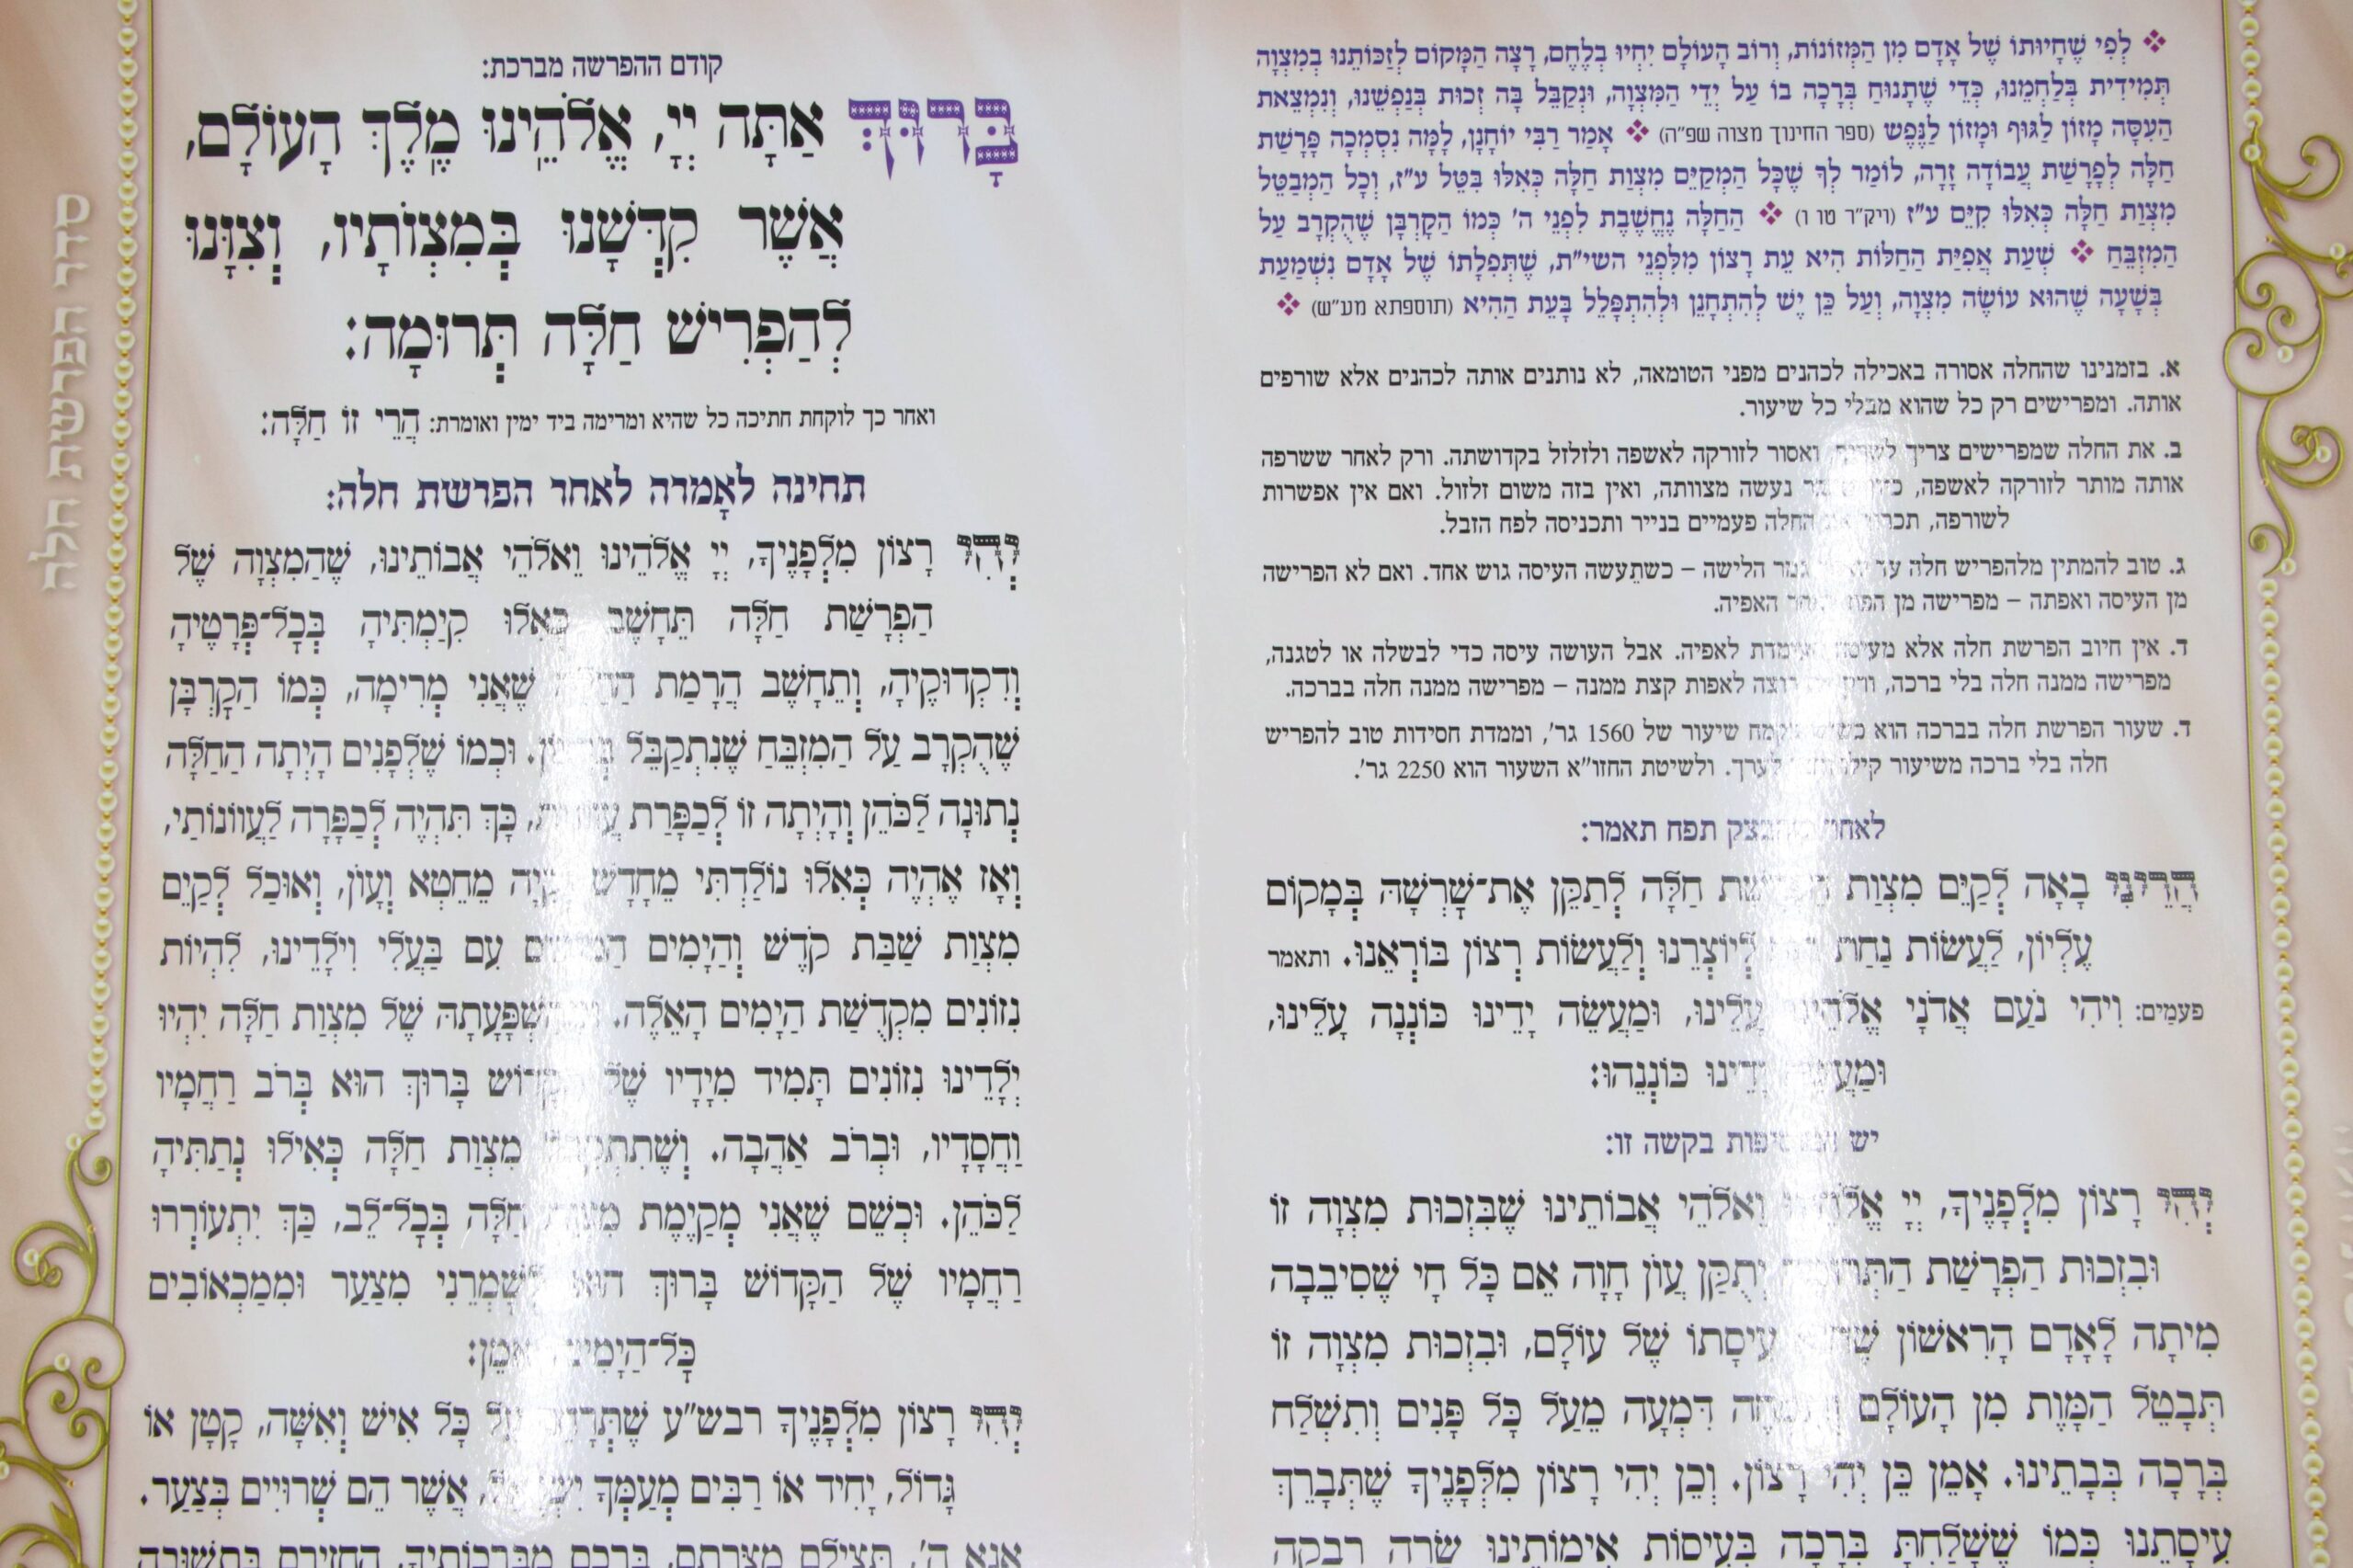 ❖ לְפִי שֶׁחָיוּתוֹ שֶׁל אָדָם מִן הַמְּזוֹנוֹת, וְרוֹב הָעוֹלָם יִחְיוּ בְלֶחֶם, רָצָה הַמָּקוֹם לְזַכּוֹתֵנוּ בְּמִצְוָה
תְּמִידִית בְּלַחְמֵנוּ, כְּדֵי שֶׁתָּנוּחַ בְּרָכָה בוֹ עַל יְדֵי הַמִּצְוָה, וּנְקַבֵּל בָּהּ זְכוּת בְּנַפְשֵׁנוּ, וְנִמְצֵאת
הָעִסָּה מָזוֹן לַגּוּף וּמָזוֹן לַנֶּפֶשׁ (ספר החינוך מצוה שפ״ה) ❖ אָמַר רַבִּי יוֹחָנָן, לָמָּה נִסְמְכָה פָּרָשַׁת
חַלָּה לְפָרָשַׁת עֲבוֹדָה זָרָה, לוֹמַר לְךָ שֶׁכָּל הַמְקַיֵּים מִצְוַת חַלָּה כְּאִלּוּ בִּטֵּל ע״ז, וְכָל הַמְבַטֵּל
מִצְוַת חַלָּה כְּאִלּוּ קִיֵּים ע״ז (ויק״ר טו ו) ❖ הַחַלָּה נֶחֱשֶׁבֶת לִפְנֵי ה׳ כְּמוֹ הַקָּרְבָּן שֶׁהֻקְרָב עַל
הַמִּזְבֵּחַ ❖ שְׁעַת אֲפִיַּת הַחַלּוֹת הִיא עֵת רָצוֹן מִלִּפְנֵי השי״ת, שֶׁתְּפִלָּתוֹ שֶׁל אָדָם נִשְׁמַעַת
בְּשָׁעָה שֶׁהוּא עוֹשֶׂה מִצְוָה, וְעַל כֵּן יֵשׁ לְהִתְחַנֵּן וּלְהִתְפַּלֵּל בָּעֵת הַהִיא (תוספתא מע״ש) ❖
א. בזמנינו שהחלה אסורה באכילה לכהנים מפני הטומאה, לא נותנים אותה לכהנים אלא שורפים
אותה. ומפרישים רק כל שהוא מבלי כל שיעור.
ב. את החלה שמפרישים צריך לשרוף, ואסור לזורקה לאשפה ולזלזל בקדושתה. ורק לאחר ששרפה
אותה מותר לזורקה לאשפה, נעשה מצוותה, ואין בזה משום זלזול. ואם אין אפשרות
לשורפה, החלה פעמיים בנייר ותכניסה לפח הזבל.
ג. טוב להמתין מלהפריש חלה עד גמר הלישה – כשתֵעשה העיסה גוש אחד. ואם לא הפרישה
מן העיסה ואפתה – מפרישה מן האפיה.
ד. אין חיוב הפרשת חלה אלא לאפיה. אבל העושה עיסה כדי לבשלה או לטגנה,
מפרישה ממנה חלה בלי ברכה, רוצה לאפות קצת ממנה – מפרישה ממנה חלה בברכה.
ד. שעור הפרשת חלה בברכה הוא שיעור של 1560 גר׳, וממדת חסידות טוב להפריש
חלה בלי ברכה משיעור לערך. ולשיטת החזו״א השעור הוא 2250 גר׳.
לאחר תפח תאמר:
הֲרֵינִי בָאָה לְקַיֵּם מִצְוַת הַפְרָשַׁת חַלָּה לְתַקֵּן אֶת־שָׁרְשָׁהּ בְּמָקוֹם
עֶלְיוֹן, לַעֲשׂוֹת נַחַת לְיוֹצְרֵנוּ וְלַעֲשׂוֹת רְצוֹן בּוֹרְאֵנוּ. ותאמר
פעמַיִם: וִיהִי נֹעַם אֲדֹנָי אֱלֹהֵינוּ עָלֵינוּ, וּמַעֲשֵׂה יָדֵינוּ כּוֹנְנָה עָלֵינוּ,
וּמַעֲשֵׂה יָדֵינוּ כּוֹנְנֵהוּ:
יש בקשה זו:
יְהִי רָצוֹן מִלְּפָנֶיךָ, יְיָ אֱלֹהֵינוּ וֵאלֹהֵי אֲבוֹתֵינוּ שֶׁבִּזְכוּת מִצְוָה זוֹ
וּבִזְכוּת הַפְרָשַׁת הַתְּרוּמָה יְתֻקַּן עֲוֹן חַוָּה אֵם כָּל חָי שֶׁסִּיבְּבָה
מִיתָה לָאָדָם הָרִאשׁוֹן עִיסָתוֹ שֶׁל עוֹלָם, וּבִזְכוּת מִצְוָה זוֹ
תְּבַטֵּל הַמָּוֶת מִן הָעוֹלָם דִּמְעָה מֵעַל כָּל פָּנִים וְתִשְׁלַח
בְּרָכָה בְּבָתֵינוּ. אָמֵן כֵּן יְהִי רָצוֹן. וְכֵן יְהִי רָצוֹן מִלְּפָנֶיךָ שֶׁתְּבָרֵךְ
עִיסָתֵנוּ כְּמוֹ שֶׁשָּׁלַחְתָּ בְּרָכָה בְּעִיסוֹת אִימּוֹתֵינוּ שָׂרָה רִבְקָה
סדר הפרשת חלה
קודם ההפרשה מברכת:
בָּרוּךְ אַתָּה יְיָ, אֱלֹהֵינוּ מֶלֶךְ הָעוֹלָם,
אֲשֶׁר קִדְּשָׁנוּ בְּמִצְוֹתָיו, וְצִוָּנוּ
לְהַפְרִישׁ חַלָּה תְּרוּמָה:
ואחר כך לוקחת חתיכה כל שהיא ומרימה ביד ימין ואומרת: הֲרֵי זוֹ חַלָּה:
תחינה לאָמרה לאחר הפרשת חלה:
יְהִי רָצוֹן מִלְּפָנֶיךָ, יְיָ אֱלֹהֵינוּ וֵאלֹהֵי אֲבוֹתֵינוּ, שֶׁהַמִּצְוָה שֶׁל
הַפְרָשַׁת חַלָּה תֵּחָשֵׁב כְּאִלּוּ קִיַּמְתִּיהָ בְּכָל־פְּרָטֶיהָ
וְדִקְדּוּקֶיהָ, וְתֵחָשֵׁב הֲרָמַת הַחַלָּה שֶׁאֲנִי מְרִימָה, כְּמוֹ הַקָּרְבָּן
שֶׁהֻקְרָב עַל הַמִּזְבֵּחַ שֶׁנִּתְקַבֵּל בְּרָצוֹן. וּכְמוֹ שֶׁלְּפָנִים הָיְתָה הַחַלָּה
נְתוּנָה לַכֹּהֵן וְהָיְתָה זוֹ לְכַפָּרַת עֲוֹנוֹת, כָּךְ תִּהְיֶה לְכַפָּרָה לַעֲווֹנוֹתַי,
וְאָז אֶהְיֶה כְּאִלּוּ נוֹלַדְתִּי מֵחָדָשׁ נְקִיָּה מֵחֵטְא וְעָוֹן, וְאוּכַל לְקַיֵּם
מִצְוַת שַׁבַּת קֹדֶשׁ וְהַיָּמִים הַטּוֹבִים עִם בַּעֲלִי וִילָדֵינוּ, לִהְיוֹת
נִזּוֹנִים מִקְדֻשַּׁת הַיָּמִים הָאֵלֶּה. וּמֵהַשְׁפָּעָתָהּ שֶׁל מִצְוַת חַלָּה יִהְיוּ
יְלָדֵינוּ נִזּוֹנִים תָּמִיד מִיָּדָיו שֶׁל הַקָּדוֹשׁ בָּרוּךְ הוּא בְּרֹב רַחֲמָיו
וַחֲסָדָיו, וּבְרֹב אַהֲבָה. וְשֶׁתִּתְקַבֵּל מִצְוַת חַלָּה כְּאִילוּ נְתַתִּיהָ
לַכֹּהֵן. וּכְשֵׁם שֶׁאֲנִי מְקַיֶּמֶת מִצְוַת חַלָּה בְּכָל־לֵב, כַּךְ יִתְעוֹרְרוּ
רַחֲמָיו שֶׁל הַקָּדוֹשׁ בָּרוּךְ הוּא לְשָׁמְרֵנִי מִצַּעַר וּמִמַּכְאוֹבִים
כָּל־הַיָּמִים, אָמֵן:
יְהִי רָצוֹן מִלְּפָנֶיךָ רבש״ע שֶׁתְּרַחֵם עַל כָּל אִישׁ וְאִשָּׁה, קָטָן אוֹ
גָּדוֹל, יָחִיד אוֹ רַבִּים מֵעַמְּךָ יִשְׂרָאֵל, אֲשֶׁר הֵם שְׁרוּיִים בְּצַעַר.
אנא ה׳, תצילם מצרתם, ברכם מברכותיך, החזירם בתשובה